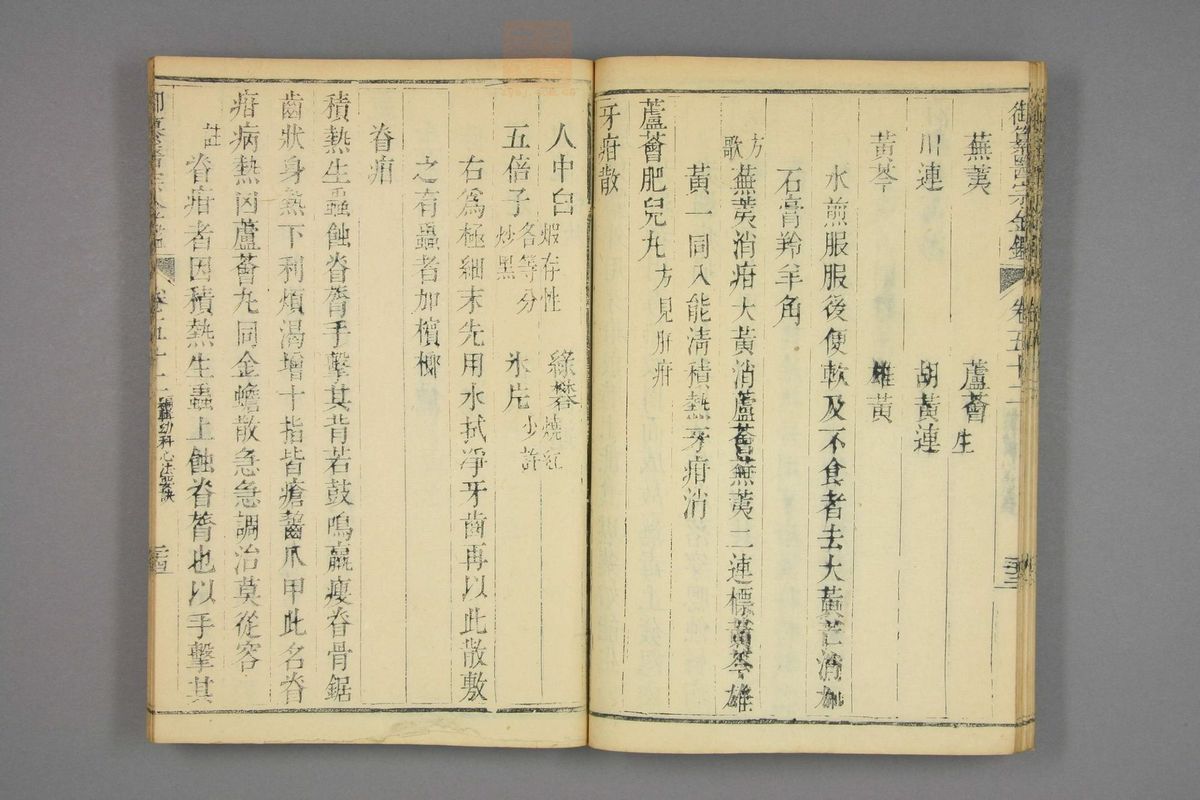 御纂醫宗金鑑 卷五十二 二十三
蕪荑 蘆薈生
川連 胡黃連
黃芩 雄黃
水煎服服後便軟及不食者去大黃芒消加
石膏羚羊角
方歌 蕪荑消疳大黃消蘆薈蕪荑二連標黃芩雄
黃一同入能淸積熱牙疳消
蘆薈肥兒丸方見肝疳
牙疳散
人中白煅存性 綠礬燒紅
五倍子各等分炒黑 冰片少許
右爲極細末先用水拭淨牙齒再以此散敷
之有蟲者加檳榔
脊疳
積熱生蟲蝕脊膂手擊其背若鼓鳴羸瘦脊骨鋸
齒狀身熱下利煩渴增十指皆瘡齧爪甲此名脊
疳病熱因蘆薈丸同金蟾散急急調治莫從容
註 脊疳者因積熱生蟲上蝕脊膂也以手擊其
編輯幼科心法要訣